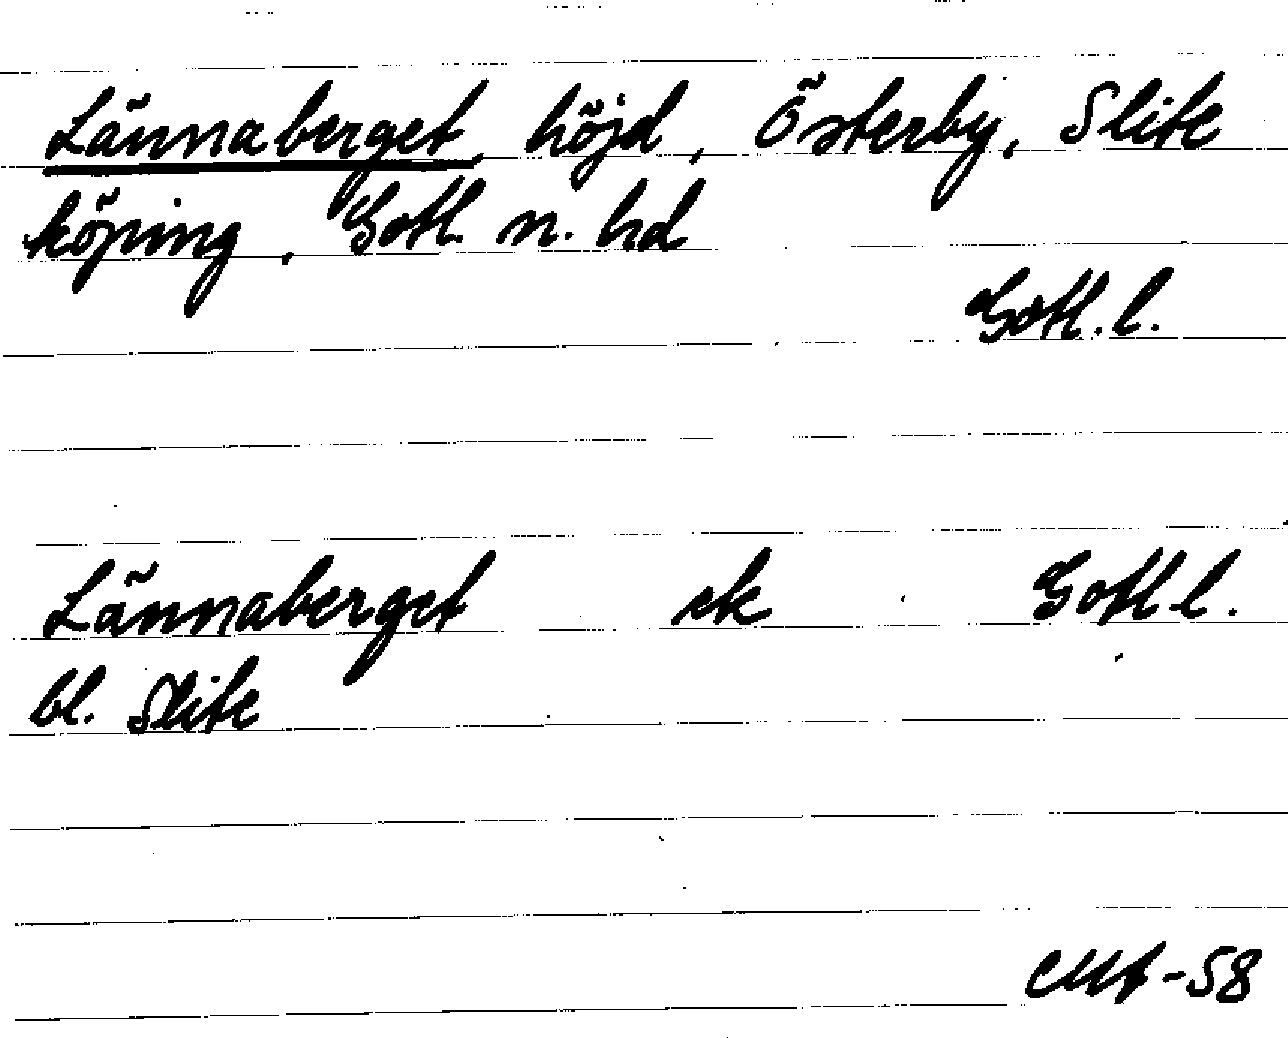 Lännaberget, höjd, Österby, Slite
köping, Gotl. n. hd
Gotl. l.
Lännaberget ek Gotl. l.
bl. Slite
-58